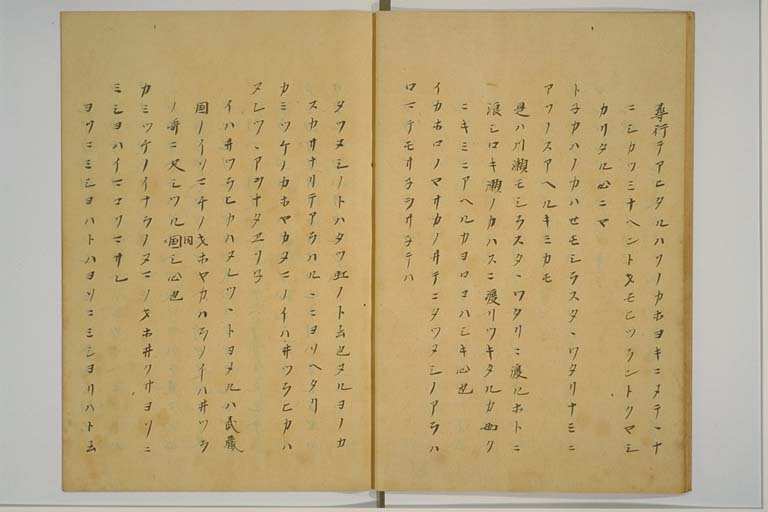 尋行テアヒタルハソノカホヨキニメテヽナ
ニシカツミナヘントヲモヒツラントクマシ
カリタル心ニマ
トネカハノカハせモシラスタヽワタリナミニ
アフノスアヘルキミカモ
是ハ川瀬モシラスタヽワタリニ渡ルホトニ
浪シロキ瀬ノカハスニ渡リツキタルカ如ク
ニキミニアヘルカヨロコハシキ心也
イカホロノマサカノ井テニタツヌシノアラハ
ロマテモサネヲサネテハ
タツヌシノトハタツ虹ノト云也ヌルヨノカ
スカサナリテアラハルヽニヨソヘタリ
カミツケノカホマカヌマノイハ井ツラヒカハ
ヌレツヽアヲナタエソネ
イハ井ツラヒカハヌレツヽトヨメルハ武蔵
国ノイリマチノヲホヤカハラノイハ井ツラ
ノ哥ニ尺シツル国シ心也
同
カミツケノイナラノヌマノヲホ井クサヨソニ
ミシヨハイマコソマサレ
ヨソニミシヨハトハヨソニミシヨリハト云